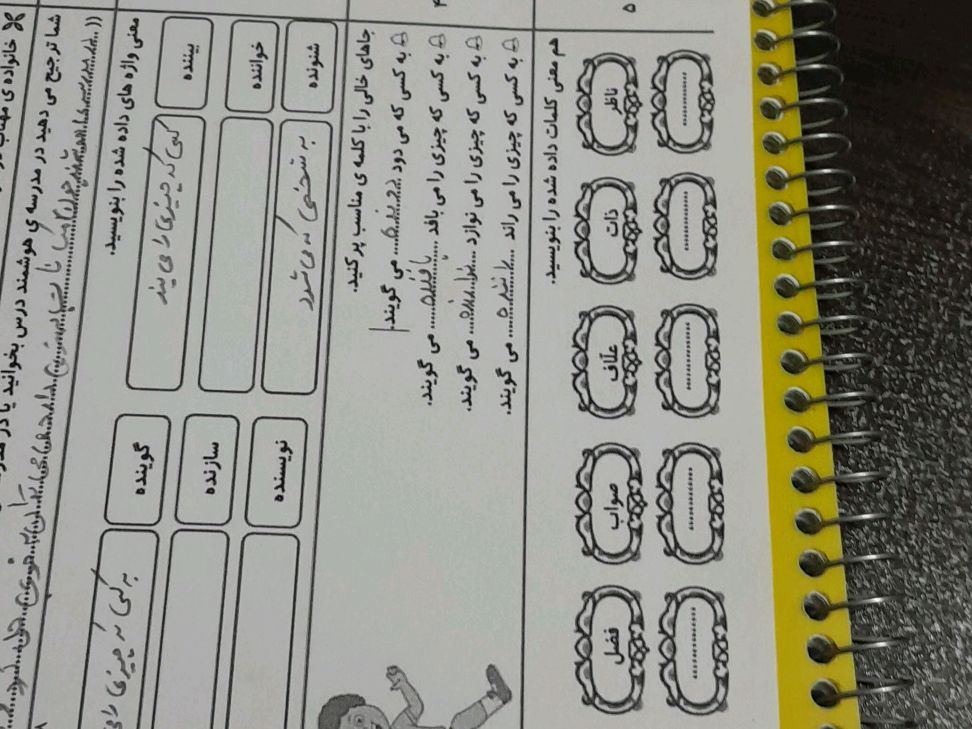 خانواده ی مهتاب
شما ترجیح می دهید در مدرسه ی هوشمند درس بخوانید یا در
معنی واژه های داده شده را بنویسید.
بیننده کسی که چیزی را می بیند گوینده به کسی که چیزی را
خواننده سازنده
شنونده به شخصی که می شنود نویسنده
جاهای خالی را با کلمه ی مناسب پر کنید.
به کسی که می دود دونده می گویند.
به کسی که چیزی را می بافد بافنده می گویند.
به کسی که چیزی را می نوازد نوازنده می گویند.
به کسی که چیزی را می راند راننده می گویند.
۵ هم معنی کلمات داده شده را بنویسید.
ناظر ذات علّاف صواب فضل